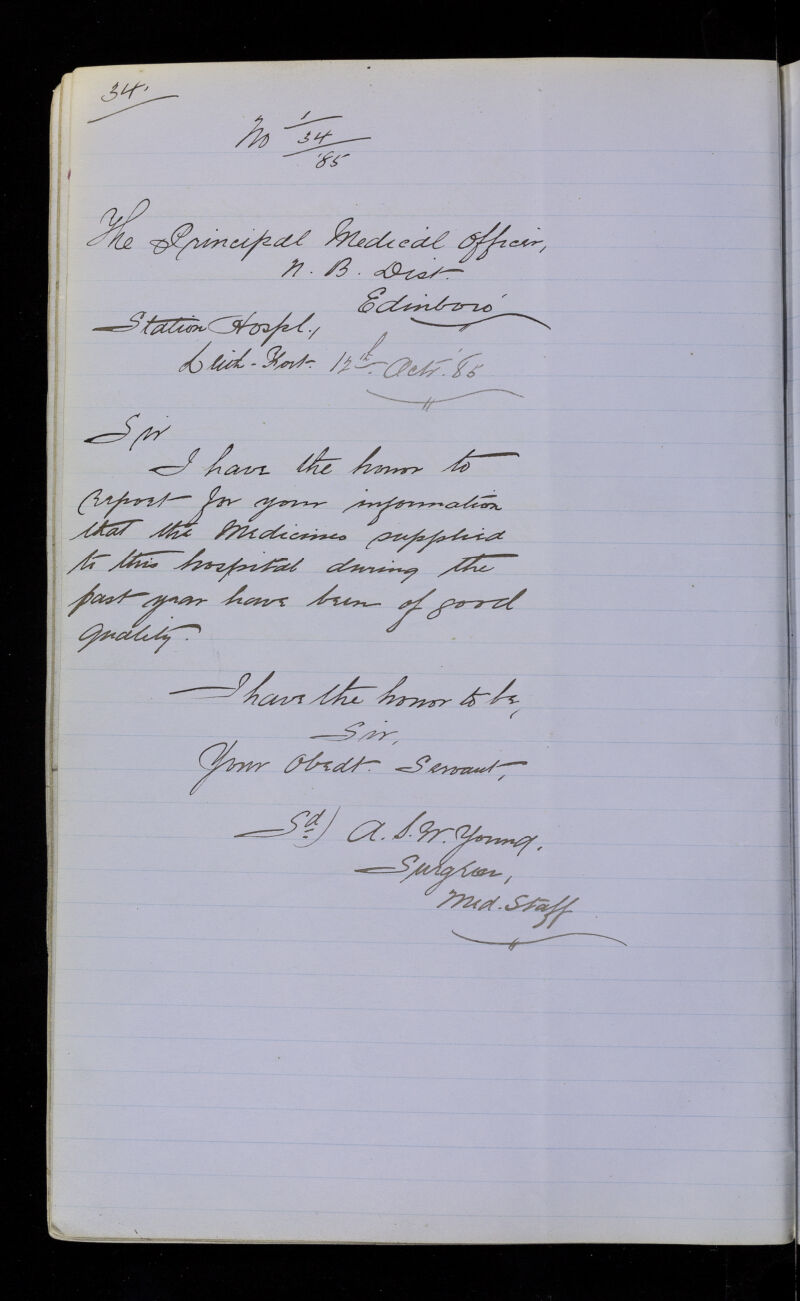 34.
No 1/34/'85
The Principal Medical Officer,
N. B. Dist.
Edinboro'
Station Hospl.,
Leith-Fort. 12th Octr. '85
Sir
I have the honor to
report for your information
that the Medicines supplied
to this hospital during the
past year have been of good
quality.
I have the honor to be,
Sir,
Your Obedt. Servant,
Sd) A. S. W. Young,
Surgeon,
Med. Staff